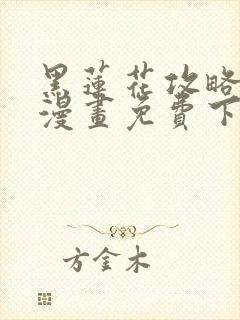 黑蓮花攻略
漫畫免費下
方金木